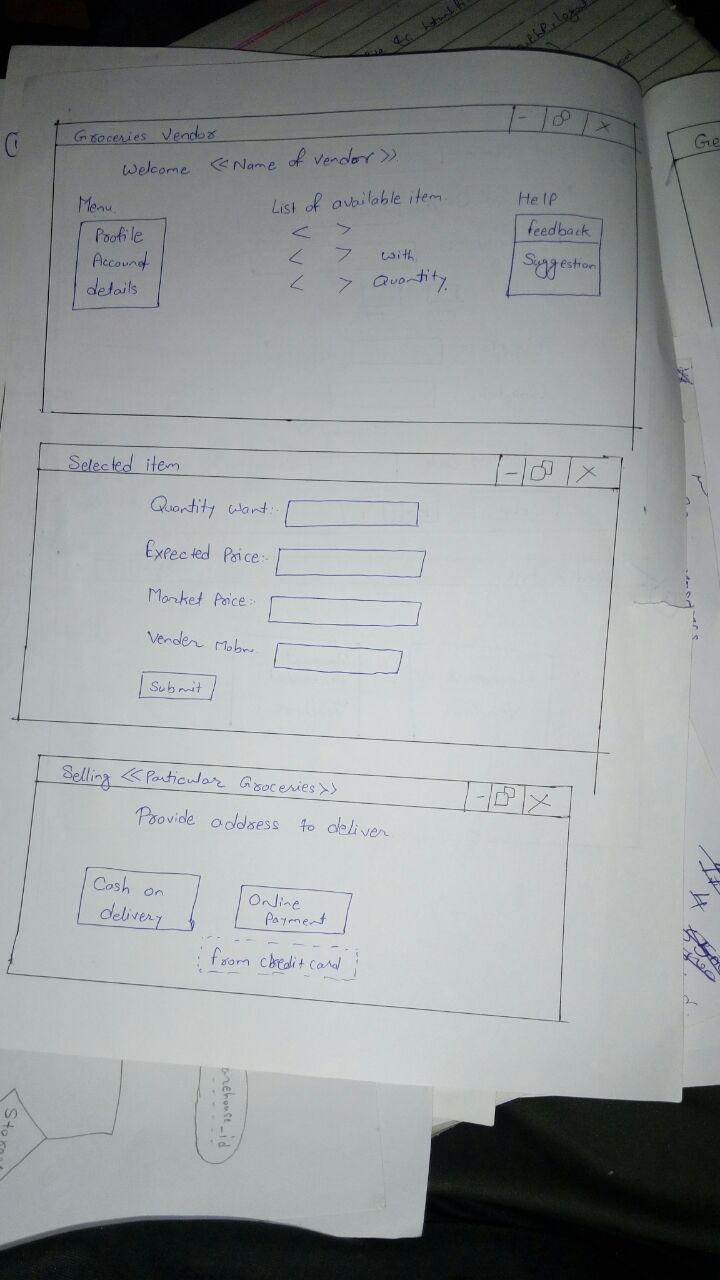 Groceries Vendor
Welcome <<Name of vendor>>
Menu.
Profile
Account
details
List of available item.
< >
< > with
< > Quantity.
Help
feedback
Suggestion
Selected item
Quantity want:-
Expected Price:-
Market Price:-
Vender Mobno.
Submit
Selling <<Particular Groceries>>
Provide address to deliver
Cash on
delivery
Online
Payment
from credit card
Ge
arehouse_id